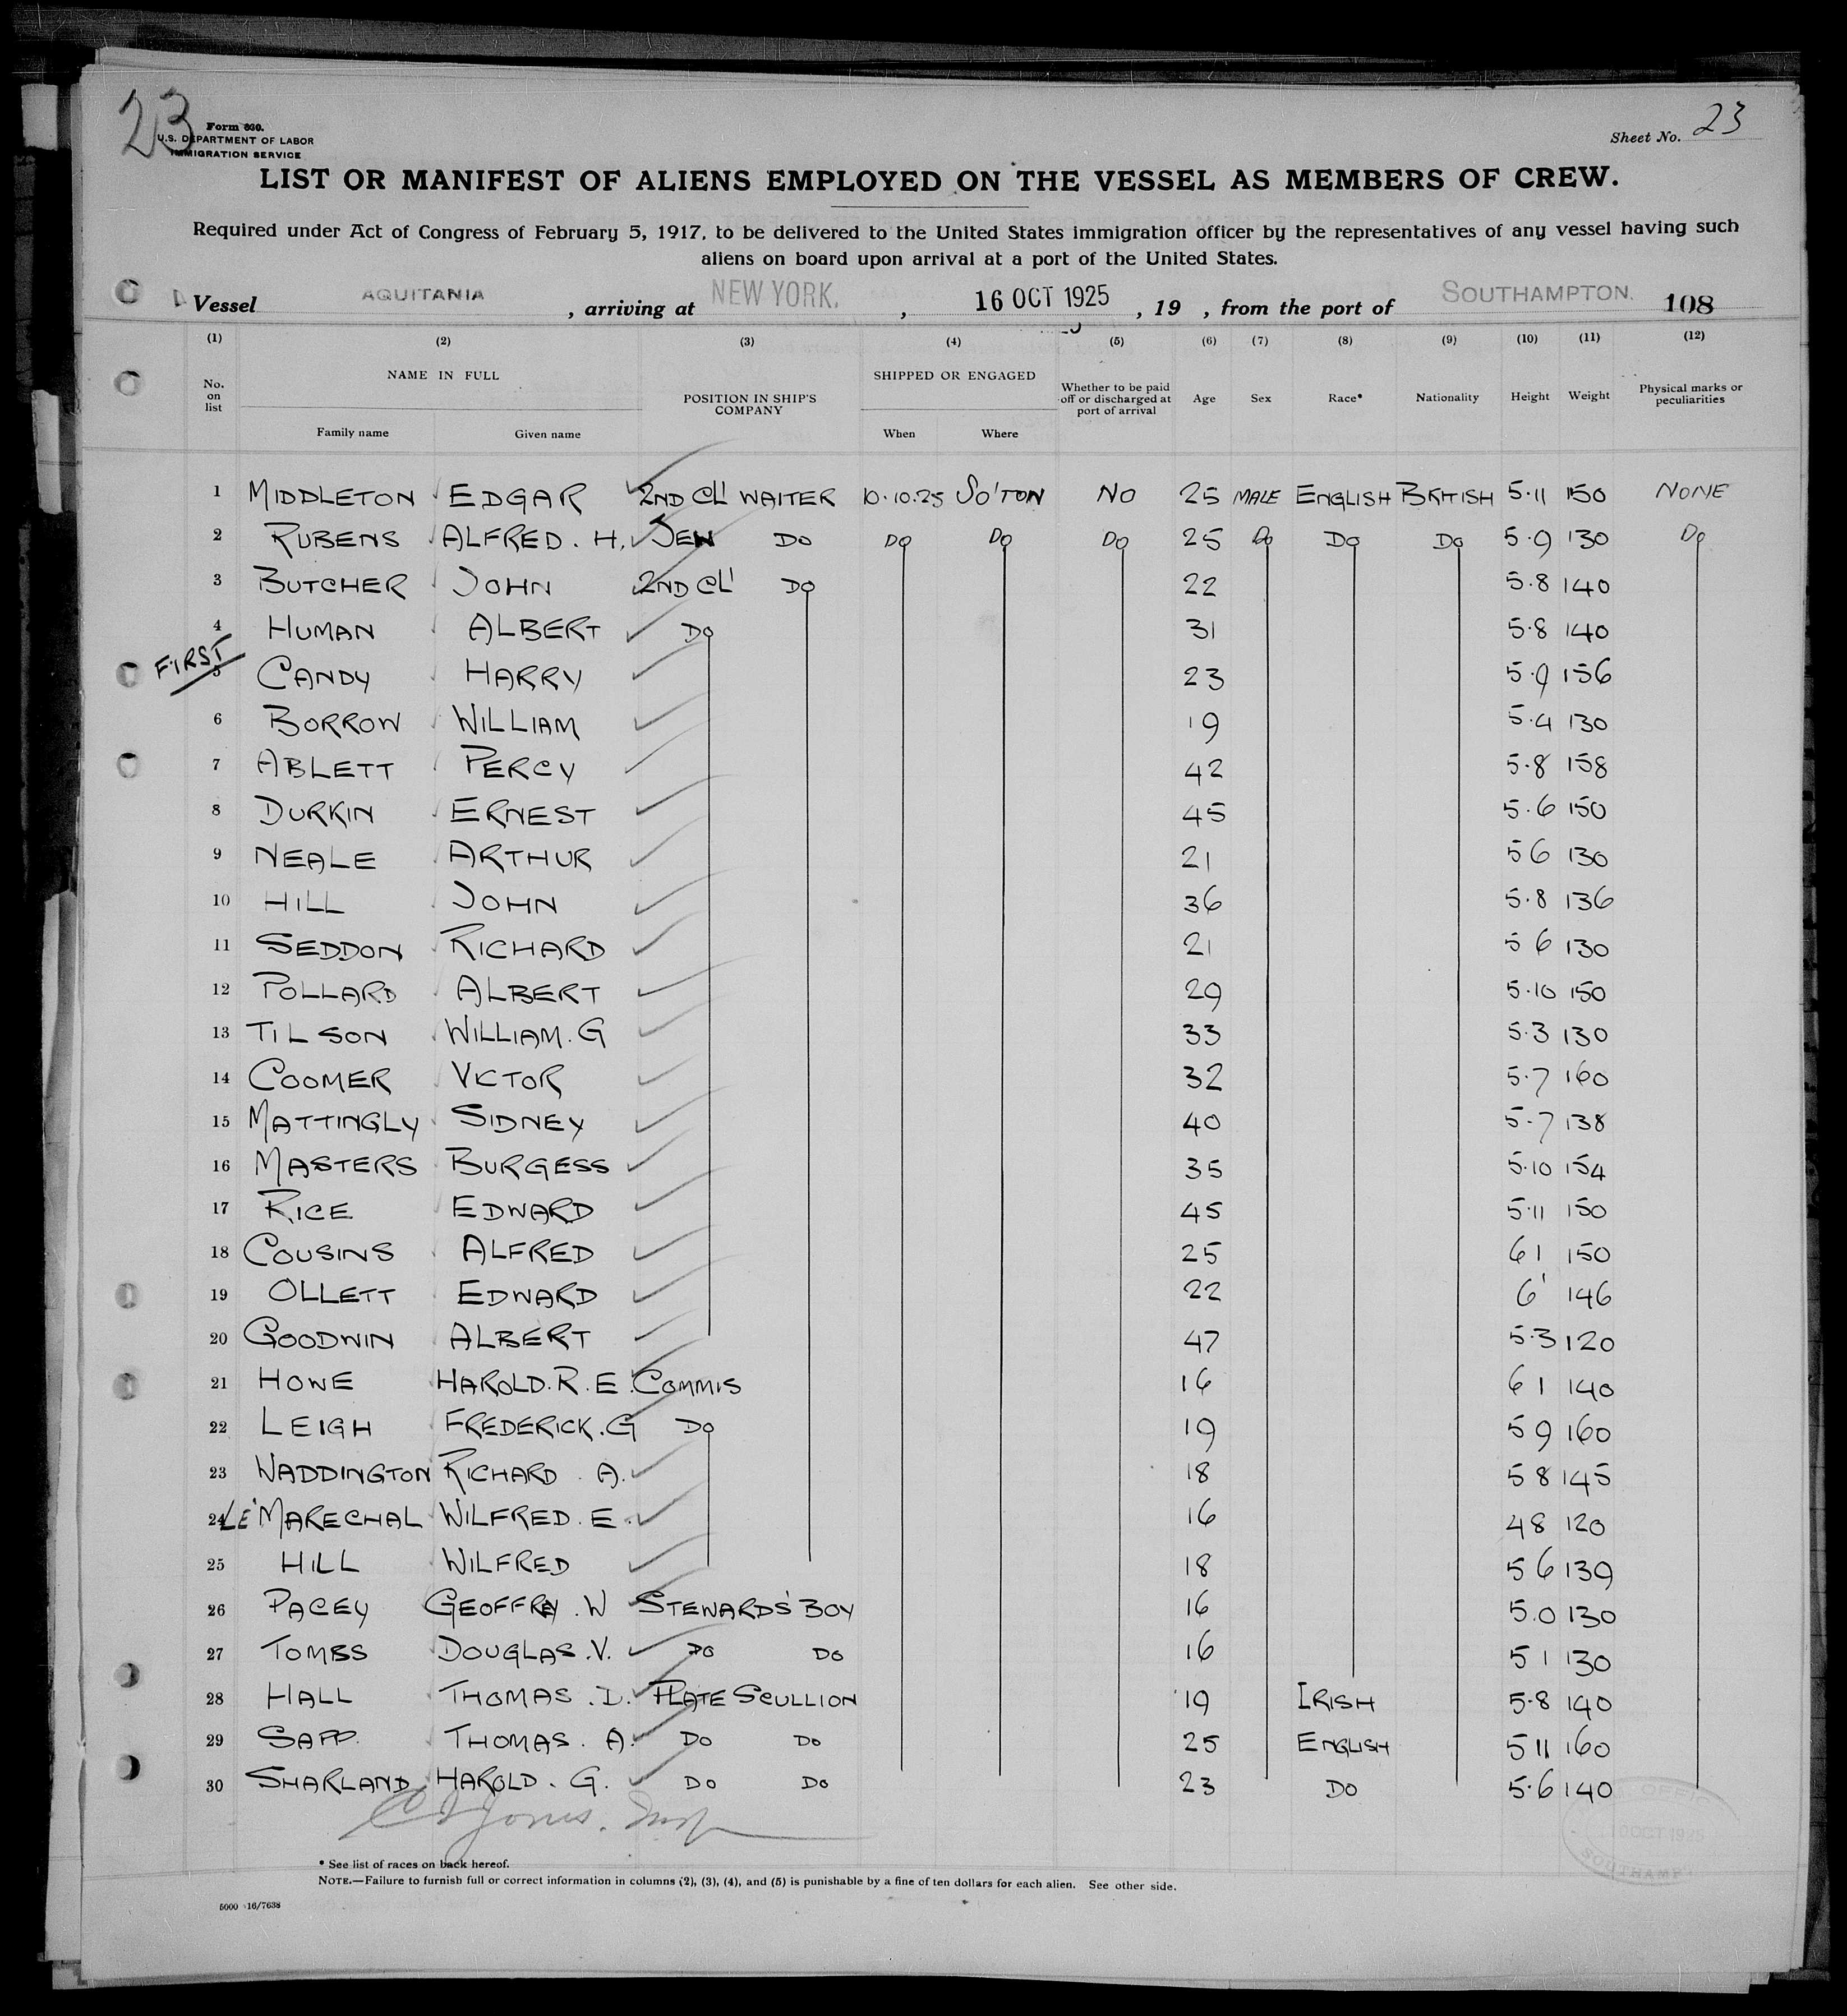 23
Form 630.
U.S. DEPARTMENT OF LABOR
IMMIGRATION SERVICE
Sheet No. 23
LIST OR MANIFEST OF ALIENS EMPLOYED ON THE VESSEL AS MEMBERS OF CREW.
Required under Act of Congress of February 5, 1917, to be delivered to the United States immigration officer by the representatives of any vessel having such
aliens on board upon arrival at a port of the United States.
Vessel AQUITANIA, arriving at NEW YORK., 16 OCT 1925, 19 , from the port of SOUTHAMPTON. 108
(1) (2) (3) (4) (5) (6) (7) (8) (9) (10) (11) (12)
No. on list NAME IN FULL POSITION IN SHIP'S COMPANY SHIPPED OR ENGAGED Whether to be paid off or discharged at port of arrival Age Sex Race* Nationality Height Weight Physical marks or peculiarities
Family name Given name When Where
1 MIDDLETON EDGAR 2ND CL' WAITER 10.10.25 SO'TON NO 25 MALE ENGLISH BRITISH 5.11 150 NONE
2 RUBENS ALFRED. H. DO DO DO DO 25 DO DO DO 5.9 130 DO
3 BUTCHER JOHN 2ND CL' DO 22 5.8 140
4 HUMAN ALBERT DO 31 5.8 140
FIRST
5 CANDY HARRY 23 5.9 156
6 BORROW WILLIAM 19 5.4 130
7 ABLETT PERCY 42 5.8 158
8 DURKIN ERNEST 45 5.6 150
9 NEALE ARTHUR 21 5 6 130
10 HILL JOHN 36 5.8 136
11 SEDDON RICHARD 21 5 6 130
12 POLLARD ALBERT 29 5.10 150
13 TILSON WILLIAM. G 33 5.3 130
14 COOMER VICTOR 32 5.7 160
15 MATTINGLY SIDNEY 40 5.7 138
16 MASTERS BURGESS 35 5.10 154
17 RICE EDWARD 45 5.11 150
18 COUSINS ALFRED 25 6 1 150
19 OLLETT EDWARD 22 6' 146
20 GOODWIN ALBERT 47 5.3 120
21 HOWE HAROLD. R. E. COMMIS 16 6 1 140
22 LEIGH FREDERICK. G DO 19 5 9 160
23 WADDINGTON RICHARD. A. 18 5 8 145
24 LE' MARECHAL WILFRED. E. 16 4 8 120
25 HILL WILFRED 18 5 6 139
26 PACEY GEOFFREY. W STEWARDS' BOY 16 5.0 130
27 TOMBS DOUGLAS. V. DO DO 16 5 1 130
28 HALL THOMAS. D. PLATE SCULLION 19 IRISH 5.8 140
29 SAPP. THOMAS. A. DO DO 25 ENGLISH 5 11 160
30 SHARLAND HAROLD. G. DO DO 23 DO 5.6 140
Jones. Insp
10 OCT 1925
* See list of races on back hereof.
NOTE.—Failure to furnish full or correct information in columns (2), (3), (4), and (5) is punishable by a fine of ten dollars for each alien. See other side.
5000 16/7638